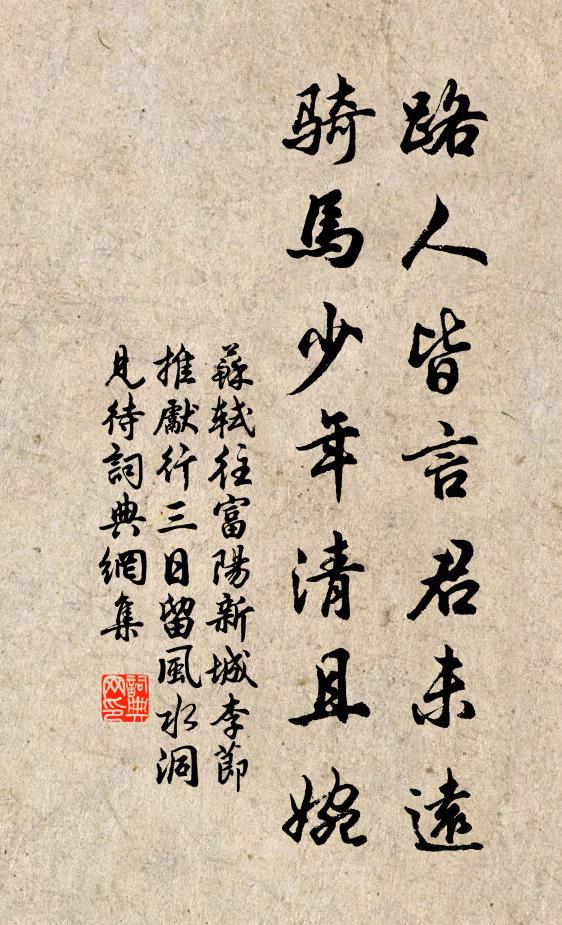 路人皆言君未遠
騎馬少年清且婉
蘇軾往富陽新城李節
推獻行三日留風水洞
見待詞典網集
詞典
网印